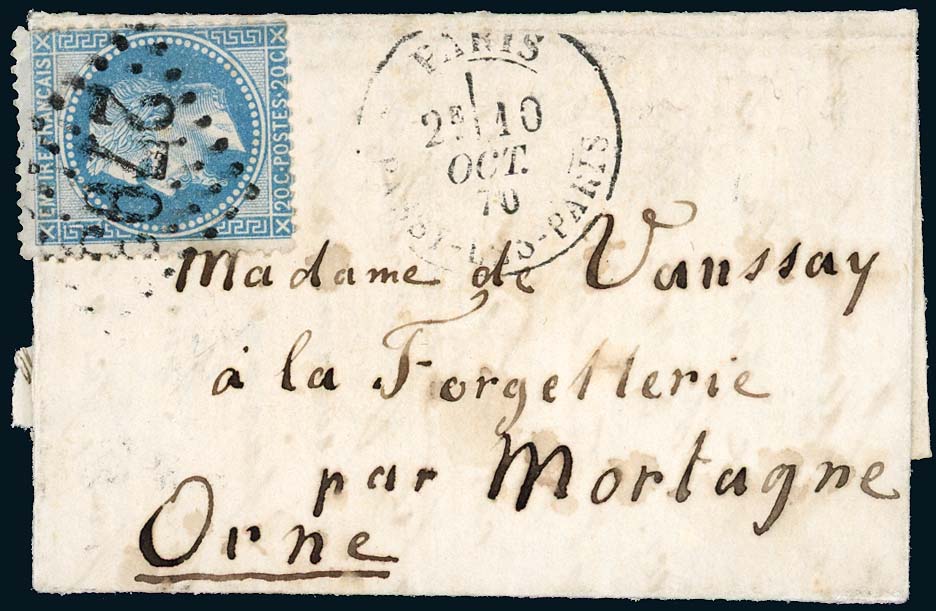 EMPIRE FRANÇAIS
20C·POSTES·20C
PARIS
2E 10
OCT.
70
PARIS
Madame de Vanssay
à la Forgetterie
par Mortagne
Orne